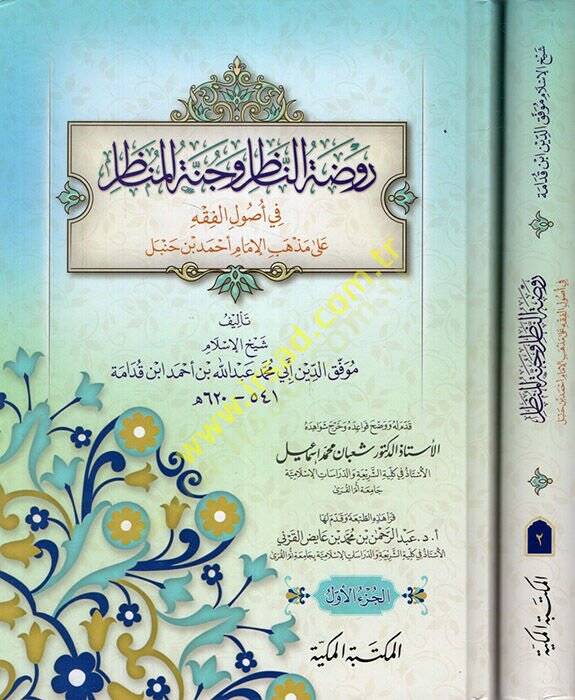 روضة الناظر وجنة المناظر
في أصول الفقه
على مذهب الإمام أحمد بن حنبل
تأليف
شيخ الإسلام
موفق الدين أبي محمد عبد الله بن أحمد ابن قدامة
٥٤١ - ٦٢٠هـ
قدم له ووضح قواعده وخرج شواهده
الأستاذ الدكتور شعبان محمد إسماعيل
الأستاذ في كلية الشريعة والدراسات الإسلامية
جامعة أم القرى
قرأ هذه الطبعة وقدم لها
أ. د. عبد الرحمن بن محمد بن عايض القرني
الأستاذ في كلية الشريعة والدراسات الإسلامية بجامعة أم القرى
الجزء الأول
المكتبة المكية
www.irsad.com.tr
شيخ الإسلام موفق الدين ابن قدامة
روضة الناظر وجنة المناظر
في أصول الفقه على مذهب الإمام أحمد بن حنبل
٢
المكتبة المكية